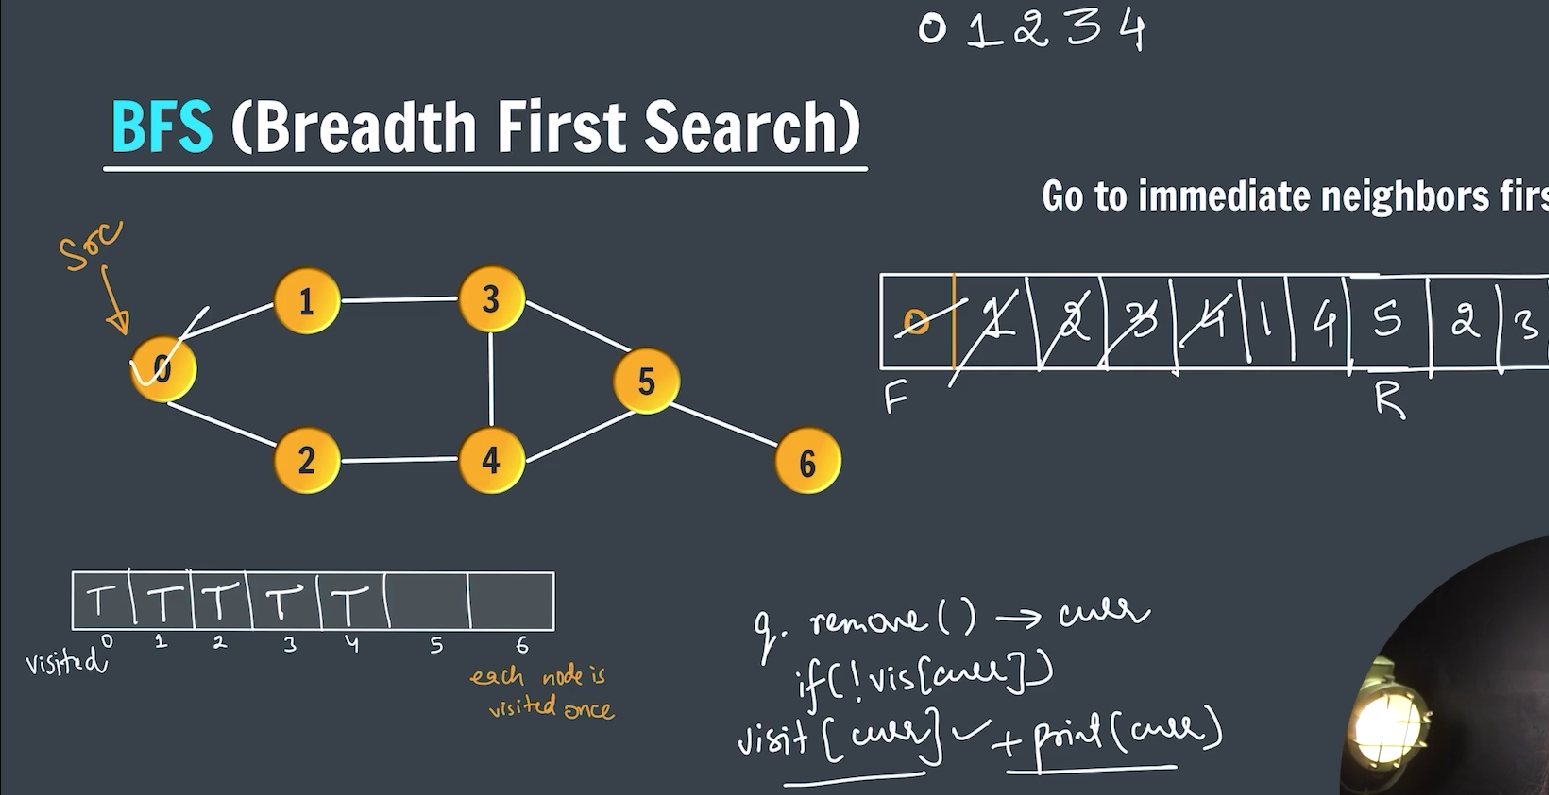 0 1 2 3 4
BFS (Breadth First Search)
Go to immediate neighbors firs
Src
1
3
0
5
2
4
6
0 1 2 3 4 1 4 5 2 3
F
R
T T T T T
0 1 2 3 4 5 6
visited
each node is
visited once
q. remove() → curr
if(!vis[curr])
visit[curr] ✓ + print(curr)